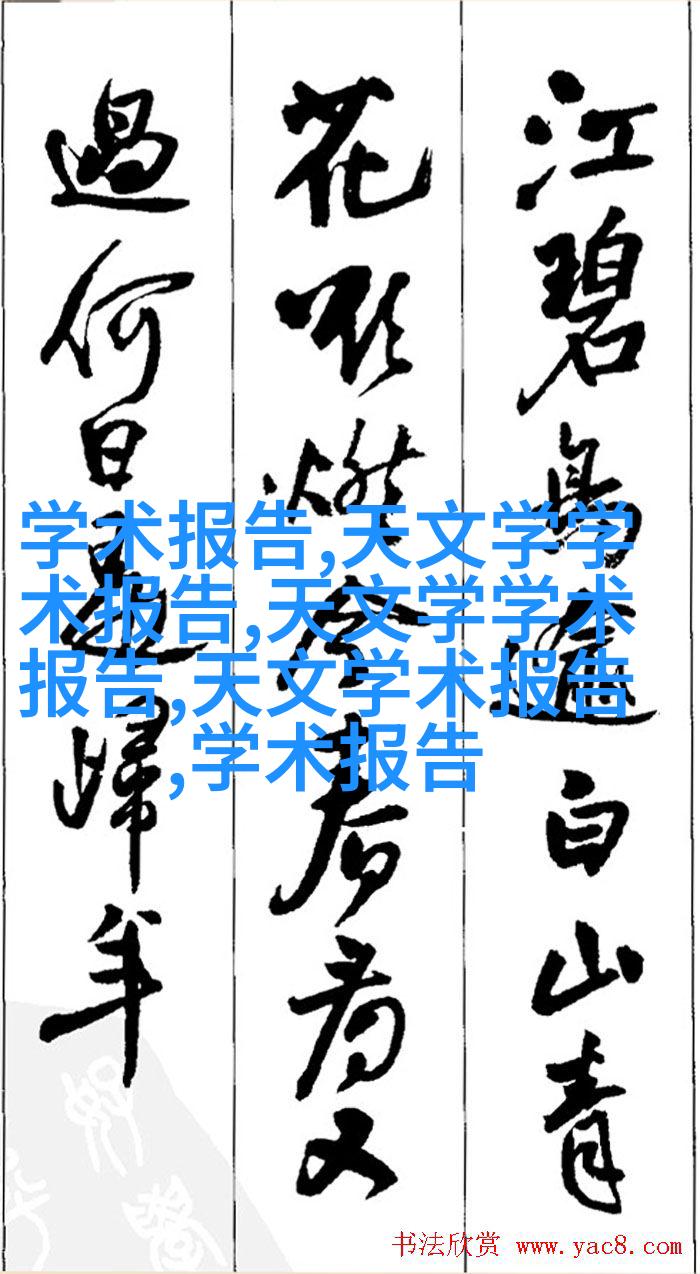 江碧鳥逾白山青
花欲燃今春看又
過何日是歸年
学术报告,天文学学
术报告,天文学学术
报告,天文学术报告
,学术报告
书法欣赏 www.yac8.com